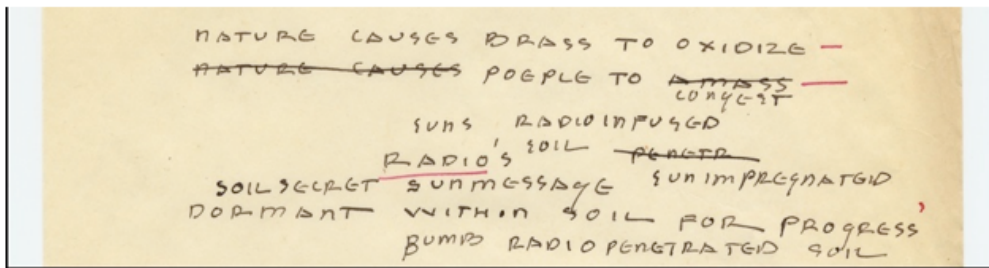 NATURE CAUSES BRASS TO OXIDIZE —
NATURE CAUSES POEPLE TO AMASS —
CONGEST
SUNS RADIOINFUSED
RADIO'S SOIL PENETR
SOILSECRET SUNMESSAGE SUNIMPREGNATED
DORMANT WITHIN SOIL FOR PROGRESS'
BUMB RADIOPENETRATED SOIL